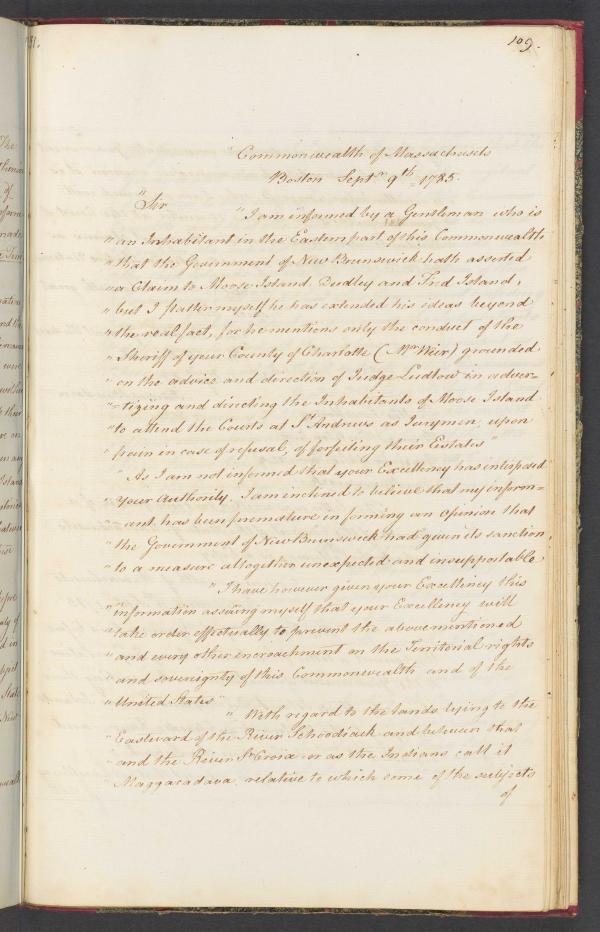 109.
"Commonwealth of Massachusets
Boston Septr. 9th. 1785.
"Sir "I am informed by a Gentleman who is
"an Inhabitant in the Eastern part of this Commonwealth
"that the Government of New Brunswick hath asserted
"a Claim to Moose Island Dudley and Fred Island,
"but I flatter myself he has extended his ideas beyond
"the real fact, for he mentions only the conduct of the
"Sheriff of your County of Charlotte (Mr. Weir) grounded
"on the advice and direction of Judge Ludlow in adver=
"=tizing and directing the Inhabitants of Moose Island
"to attend the Courts at St. Andrews as Jurymen, upon
"pain in case of refusal, of forfeiting their Estates"
"As I am not informed that your Excellency has interposed
"your authority, I am inclined to believe that my inform=
"ant has been premature in forming an opinion that
"the Government of New Brunswick had given its sanction
"to a measure altogether unexpected and insupportable
"I have however given your Excellency this
"information assuring myself that your Excellency will
"take order effectually to prevent the abovementioned
"and every other encroachment on the Territorial rights
"and sovereignty of this Commonwealth and of the
"United States"
"With regard to the lands lying to the
"Eastward of the River Schoodiack and between that
"and the River St. Croix or as the Indians call it
"Maggacadava, relative to which some of the subjects
of